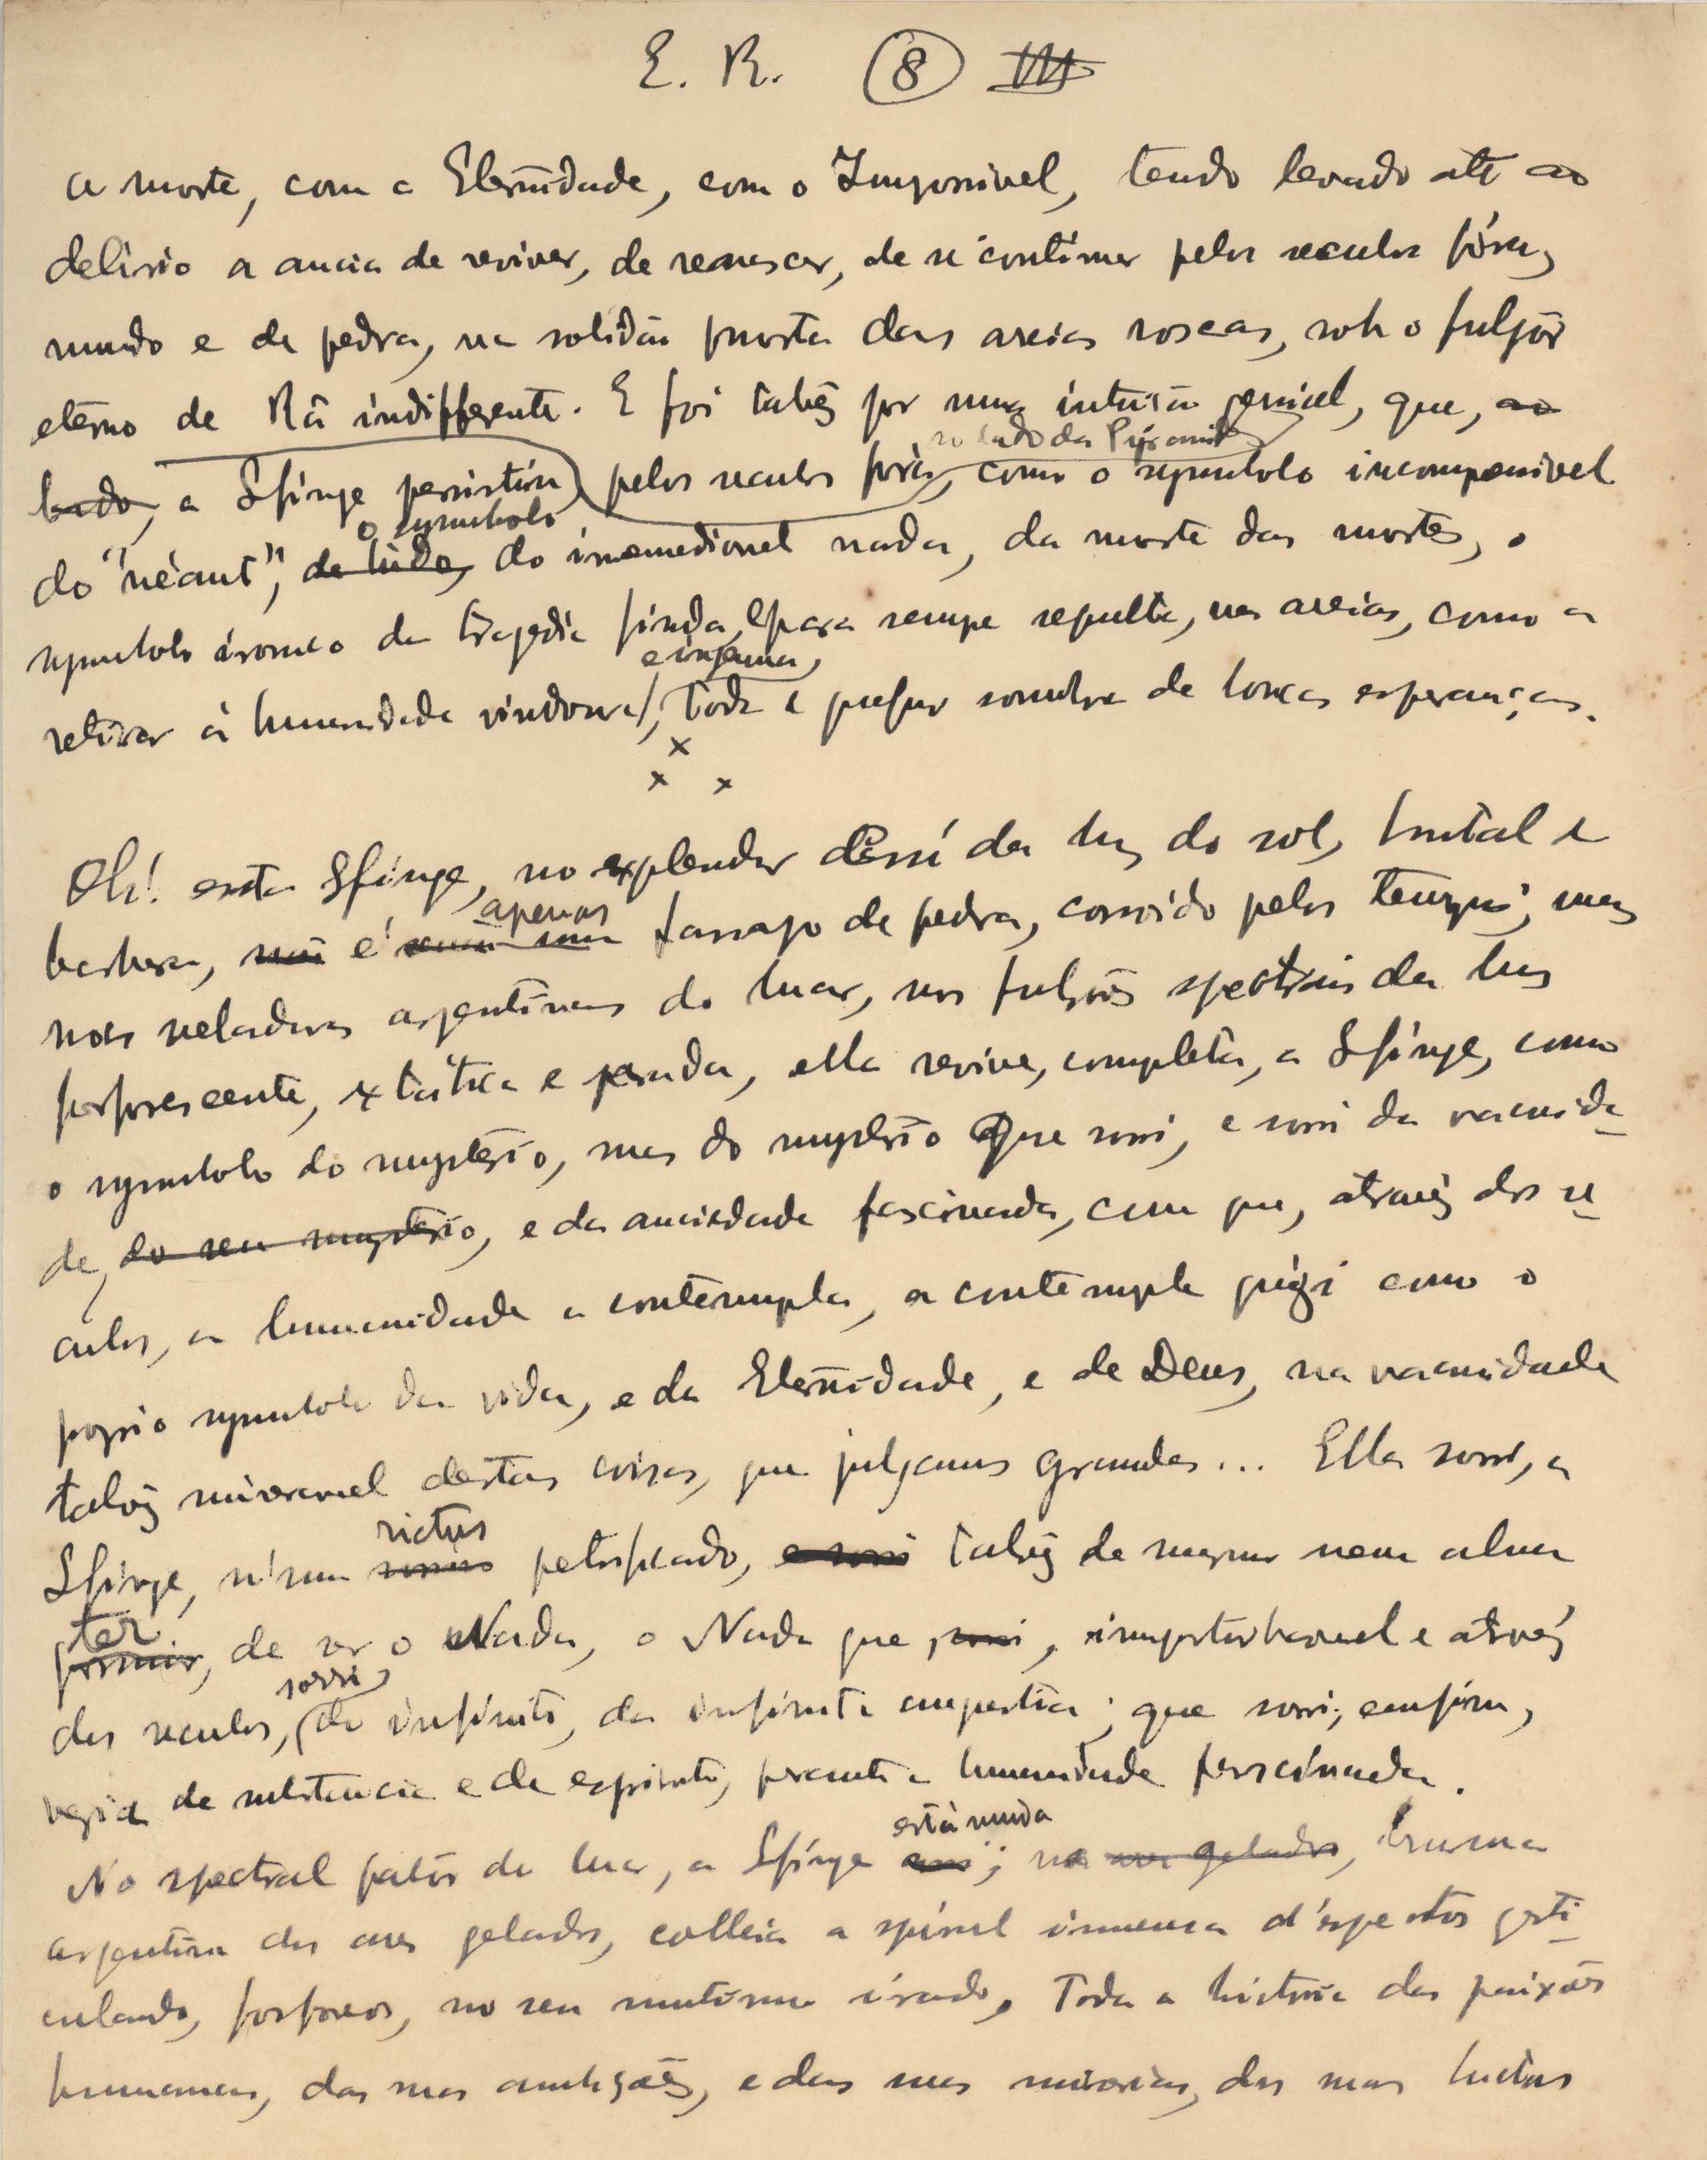 E. R. 8 III
a morte, com a Eternidade, com o Impossivel, tendo levado até ao
delirio a ancia de reviver, de renascer, de se continuar pelos seculos fóra,
mundo e de pedra, na solidão morta das areias roseas, sob o fulgôr
etérno de Râ indifferente. E foi talvês por uma intuição genial, que, ao
lado, a Sfinge persistiu pelos seculos fóra, como o symbolo incomparavel
ao lado da Pyramide
do "néant", de tudo, do irremediavel nada, da morte das mortes, o
o symbolo
symbolo ironico da tragedia finda, e para sempre sepulta, nas areias, como a
retirar á humanidade vindoura, toda a sombra de loucas esperanças.
e ingenua,
x
x x
Oh! esta Sfinge, no explendor da luz do sol, brutal e
barbara, não é senão um farrapo de pedra, corroido pelos tempos; mas
apenas
nas veladuras argentinas do luar, nos fulgôres spectrais da luz
forforescente, extática e parada, ella revive, completa, a Sfinge, como
o symbolo do mysterio, mas do mysterio que sorri, e sorri da vacuida-
de, do seu mysterio, e da anciedade fascinada, com que, através dos se-
culos, a humanidade a contempla, a contempla como o
proprio symbolo da vida, e da Eternidade, e de Deus, na vacuidade
talvês miseravel destas coisas, que julgamos grandes... Ella sorri, a
Sfinge, n'um sorriso petrificado, e sorri talvês de mesmo nem alma
rictus
possuir, de ser o Nada, o Nada que sorri, imperturbavel e através
ter
dos seculos, do infinito, da infinita ; que sorri, emfim,
sorri
vasia de substancia e de espirito, perante a humanidade fascinada.
No spectral palôr do luar, a Sfinge sorri; na nos gelados, bruma
está muda
argentina dos ares gelados, colleia a spiral immensa d'espectros gesti-
culando, fosforeos, no seu mutismo irado. Toda a historia das paixões
humanas, das suas ambições, e das suas miserias, das suas luctas